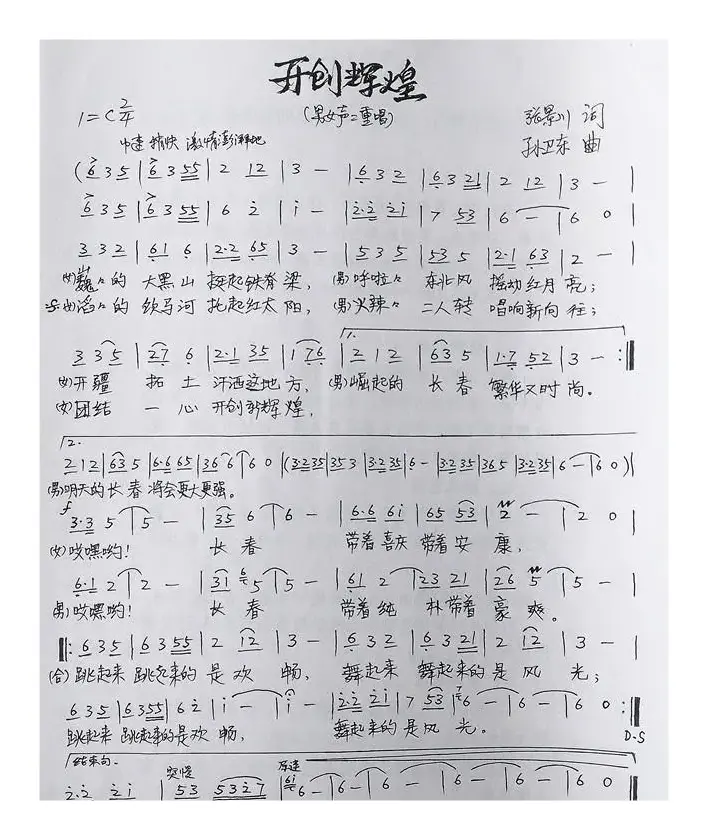 开创辉煌
(男女声二重唱)
1=C 2/4
张景川 词
孙卫东 曲
中速 稍快 激情澎湃地
(6 3 5 | 6 3 5 5 | 2 1 2 | 3 — | 6 3 2 | 6 3 2 1 | 2 1 2 | 3 — |
6 3 5 | 6 3 5 5 | 6 2 | i — | 2·2 2 i | 7 5 3 | 6 — | 6 0 |
3 3 2 | 6 1 6 | 2·2 6 5 | 3 — | 5 3 5 | 5 3 5 | 2·1 6 3 | 2 — |
(女)巍々的 大黑山 挺起铁脊梁, (男)呼啦々 东北风 摇动红月亮;
(女)滔々的 饮马河 托起红太阳, (男)火辣々 二人转 唱响新向往;
3 3 5 | 2 7 6 | 2·1 3 5 | 1 7 6 | 1. 2 1 2 | 6 3 5 | 1·7 5 2 | 3 — :‖
(女)开疆 拓土 汗洒这地方, (男)崛起的 长春 繁华又时尚。
(女)团结 一心 开创新辉煌,
2.
2 1 2 | 6 3 5 | 6·6 6 5 | 3 6 6 | 6 0 | (3·2 3 5 | 3 5 3 | 3·2 3 5 | 6 — | 3·2 3 5 | 3 6 5 | 3·2 3 5 | 6 — | 6 0) |
(男)明天的 长春 将会更大更强。
f
3·3 5 | 5 — | 3 5 6 | 6 — | 6·6 6 i | 6 5 5 3 | 2 — | 2 0 |
(女)哎嘿哟! 长春 带着喜庆 带着安康,
6·1 2 | 2 — | 3 1 6 5 | 5 — | 6 1 2 | 2 3 2 1 | 2 6 5 | 5 — |
(男)哎嘿哟! 长春 带着纯朴带着豪爽。
‖: 6 3 5 | 6 3 5 5 | 2 1 2 | 3 — | 6 3 2 | 6 3 2 1 | 2 1 2 | 3 — |
(合)跳起来 跳起来的是欢畅, 舞起来 舞起来的是风光;
6 3 5 | 6 3 5 5 | 6 2 | i — | i — | 2·2 2 i | 7 5 3 | 7 6 — | 6 — | 6 0 :‖
跳起来 跳起来的是欢畅, 舞起来的是风光。
D·S
结束句. 突慢 原速
2·2 2 i | 5 3 5 3 2 7 | 6 i 6 — | 6 — | 6 — | 6 — | 6 — | 6 0 ‖